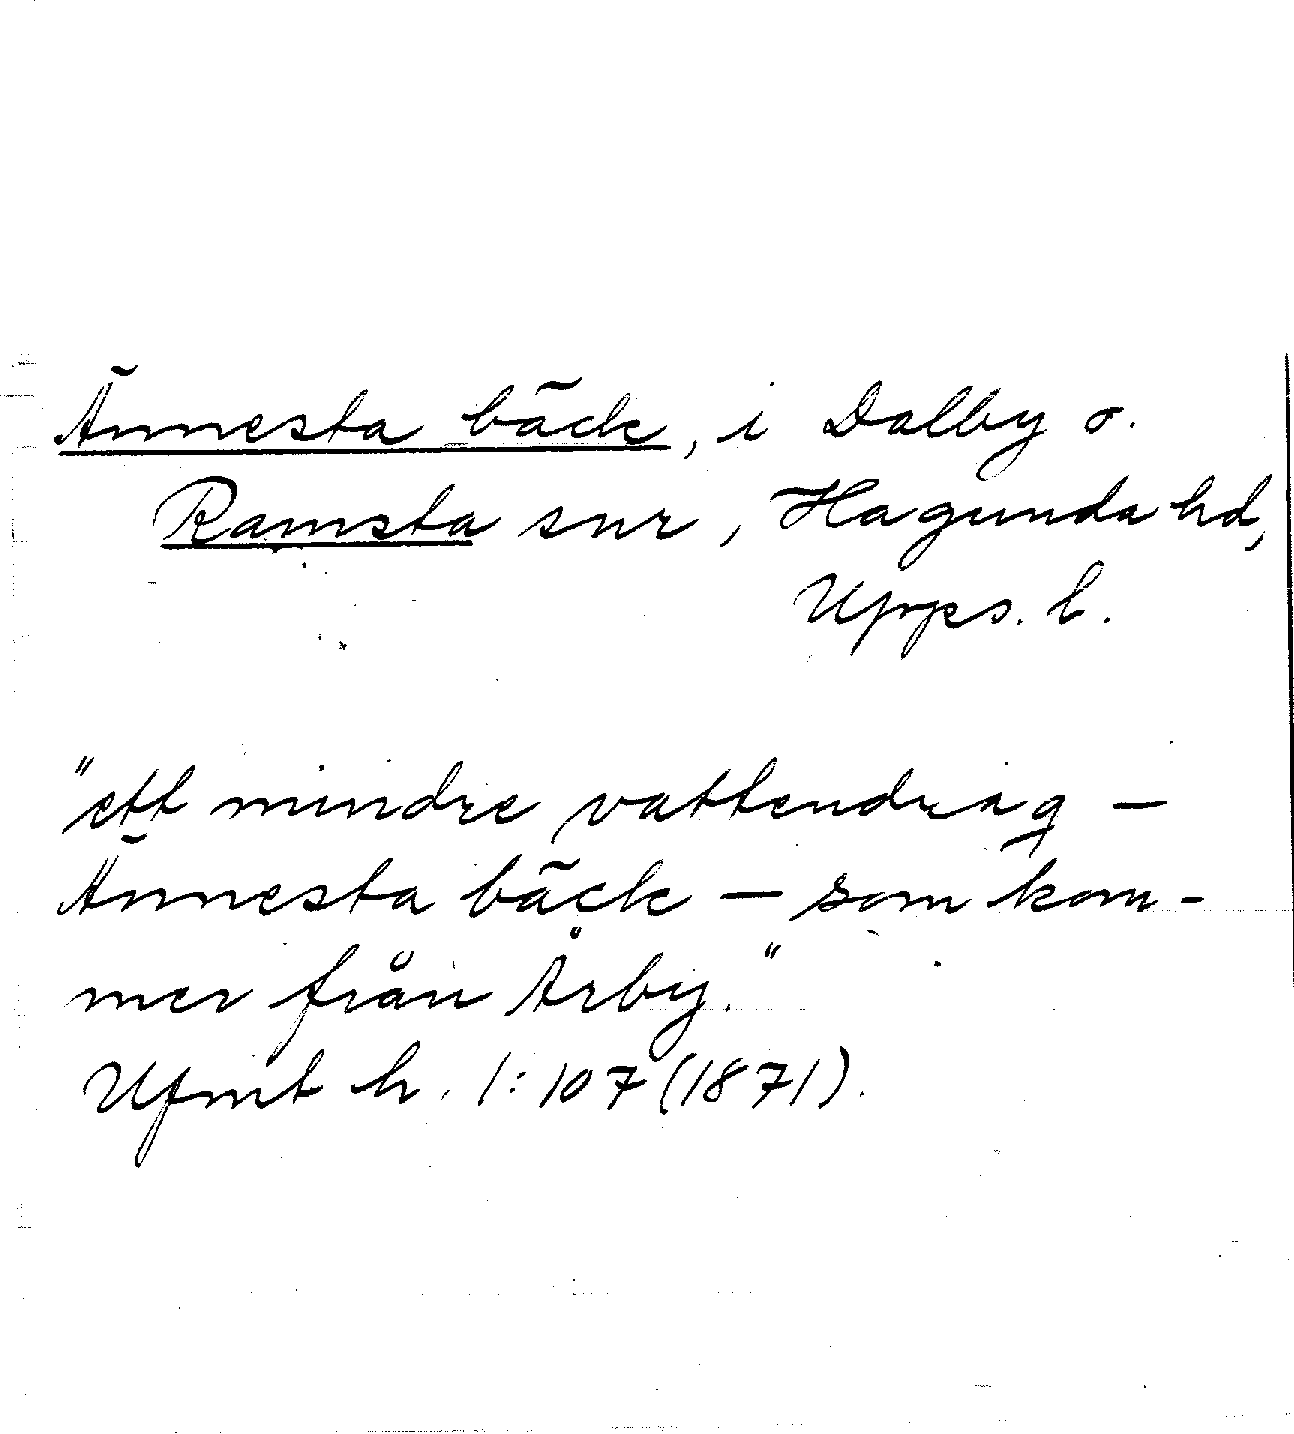 Ännesta bäck, i Dalby o.
Ramsta snr, Hagunda hd,
Upps. l.
"ett mindre vattendrag —
Ännesta bäck — som kom-
mer från Årby."
Ufmt h. 1:107 (1871).